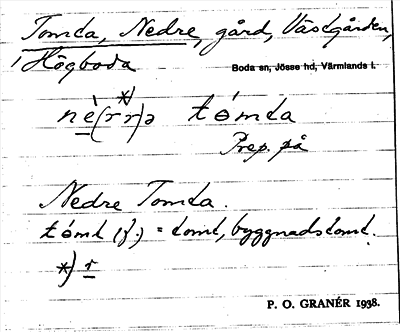 Tomta, Nedre, gård, Västgården,
i Högboda
Boda sn, Jösse hd, Värmlands l.
*)
nè(rr)ə tómta
Prep. på
Nedre Tomta.
tómt (f.) = tomt, byggnadstomt.
*) r
P. O. GRANÉR 1938.